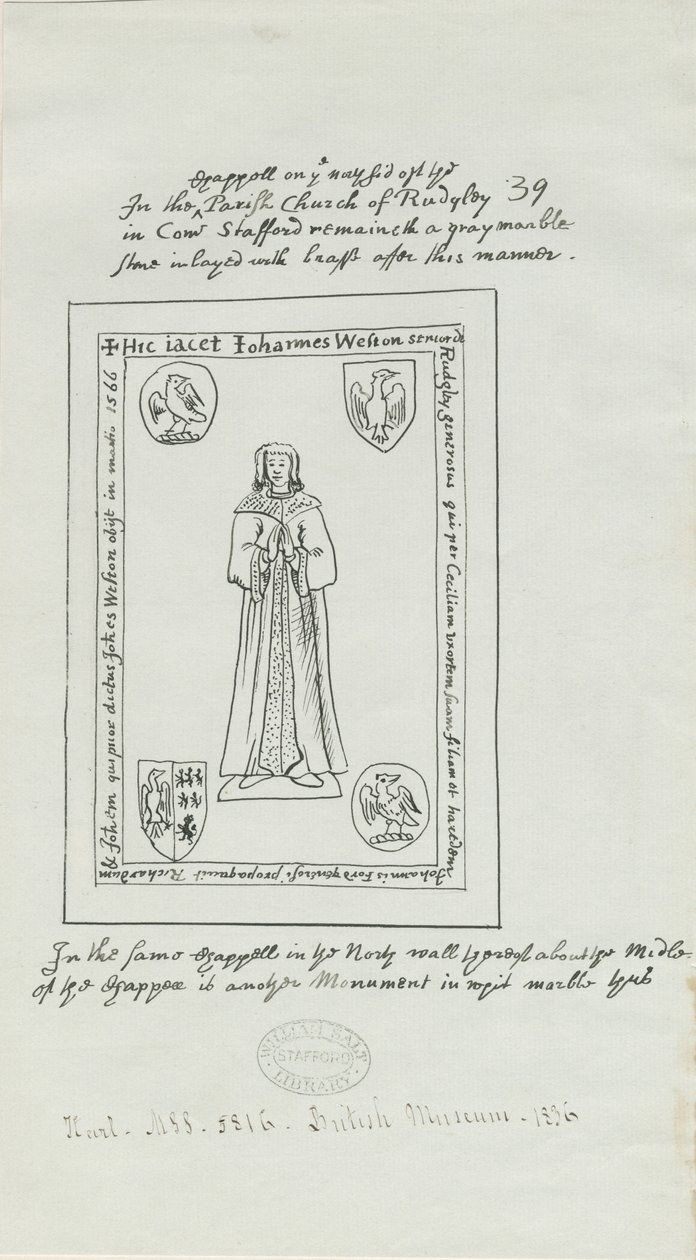 Chappell on yᵉ north sid off the
In the ‸ Parish Church of Rudgley 39
in Com̃ Stafford remaineth a gray marble
stone inlayed with brasse after this manner .
✠ Hic iacet Iohannes Weston senior de
Rudgby generosus qui per Ceciliam vxorem suam filiam et haredem
Johannis Ford generosi propaguit Richardum
& Johem̃ qui prior dictus Johes Weston obijt in martio 1566
In the same Chappell in the North wall thereof about the Midle
of the Chappell is another Monument in whit marble thus
WILLIAM SALT
STAFFORD
LIBRARY
Harl - MSS - 5816 - British Museum - 1836